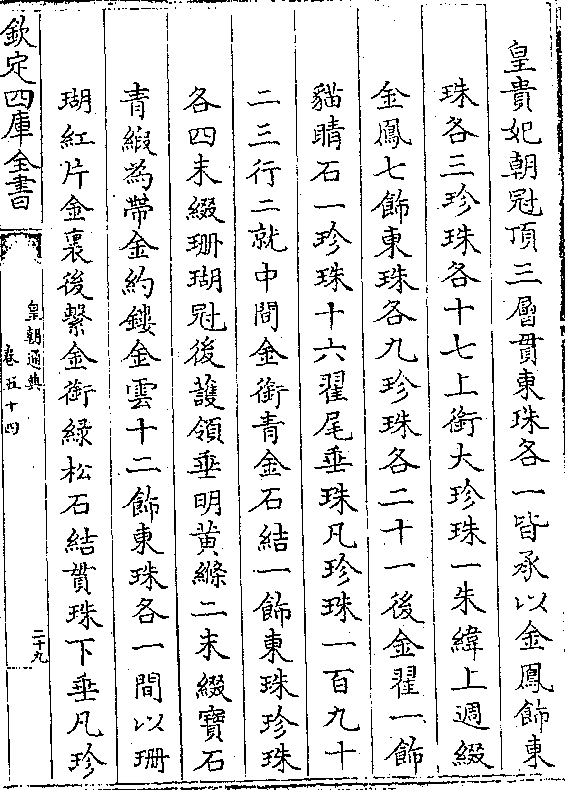 皇貴妃朝冠頂三層貫東珠各一皆承以金鳳飾東
珠各三珍珠各十七上銜大珍珠一朱緯上週綴
金鳳七飾東珠各九珍珠各二十一後金翟一飾
貓睛石一珍珠十六翟尾垂珠凡珍珠一百九十
二三行二就中間金銜青金石結一飾東珠珍珠
各四末綴珊瑚冠後護領垂明黄縧二末綴寶石
青緞為帶金約鏤金雲十二飾東珠各一間以珊
瑚紅片金裏後繫金銜綠松石結貫珠下垂凡珍
欽定四庫全書
皇朝通典
卷五十四
二十九